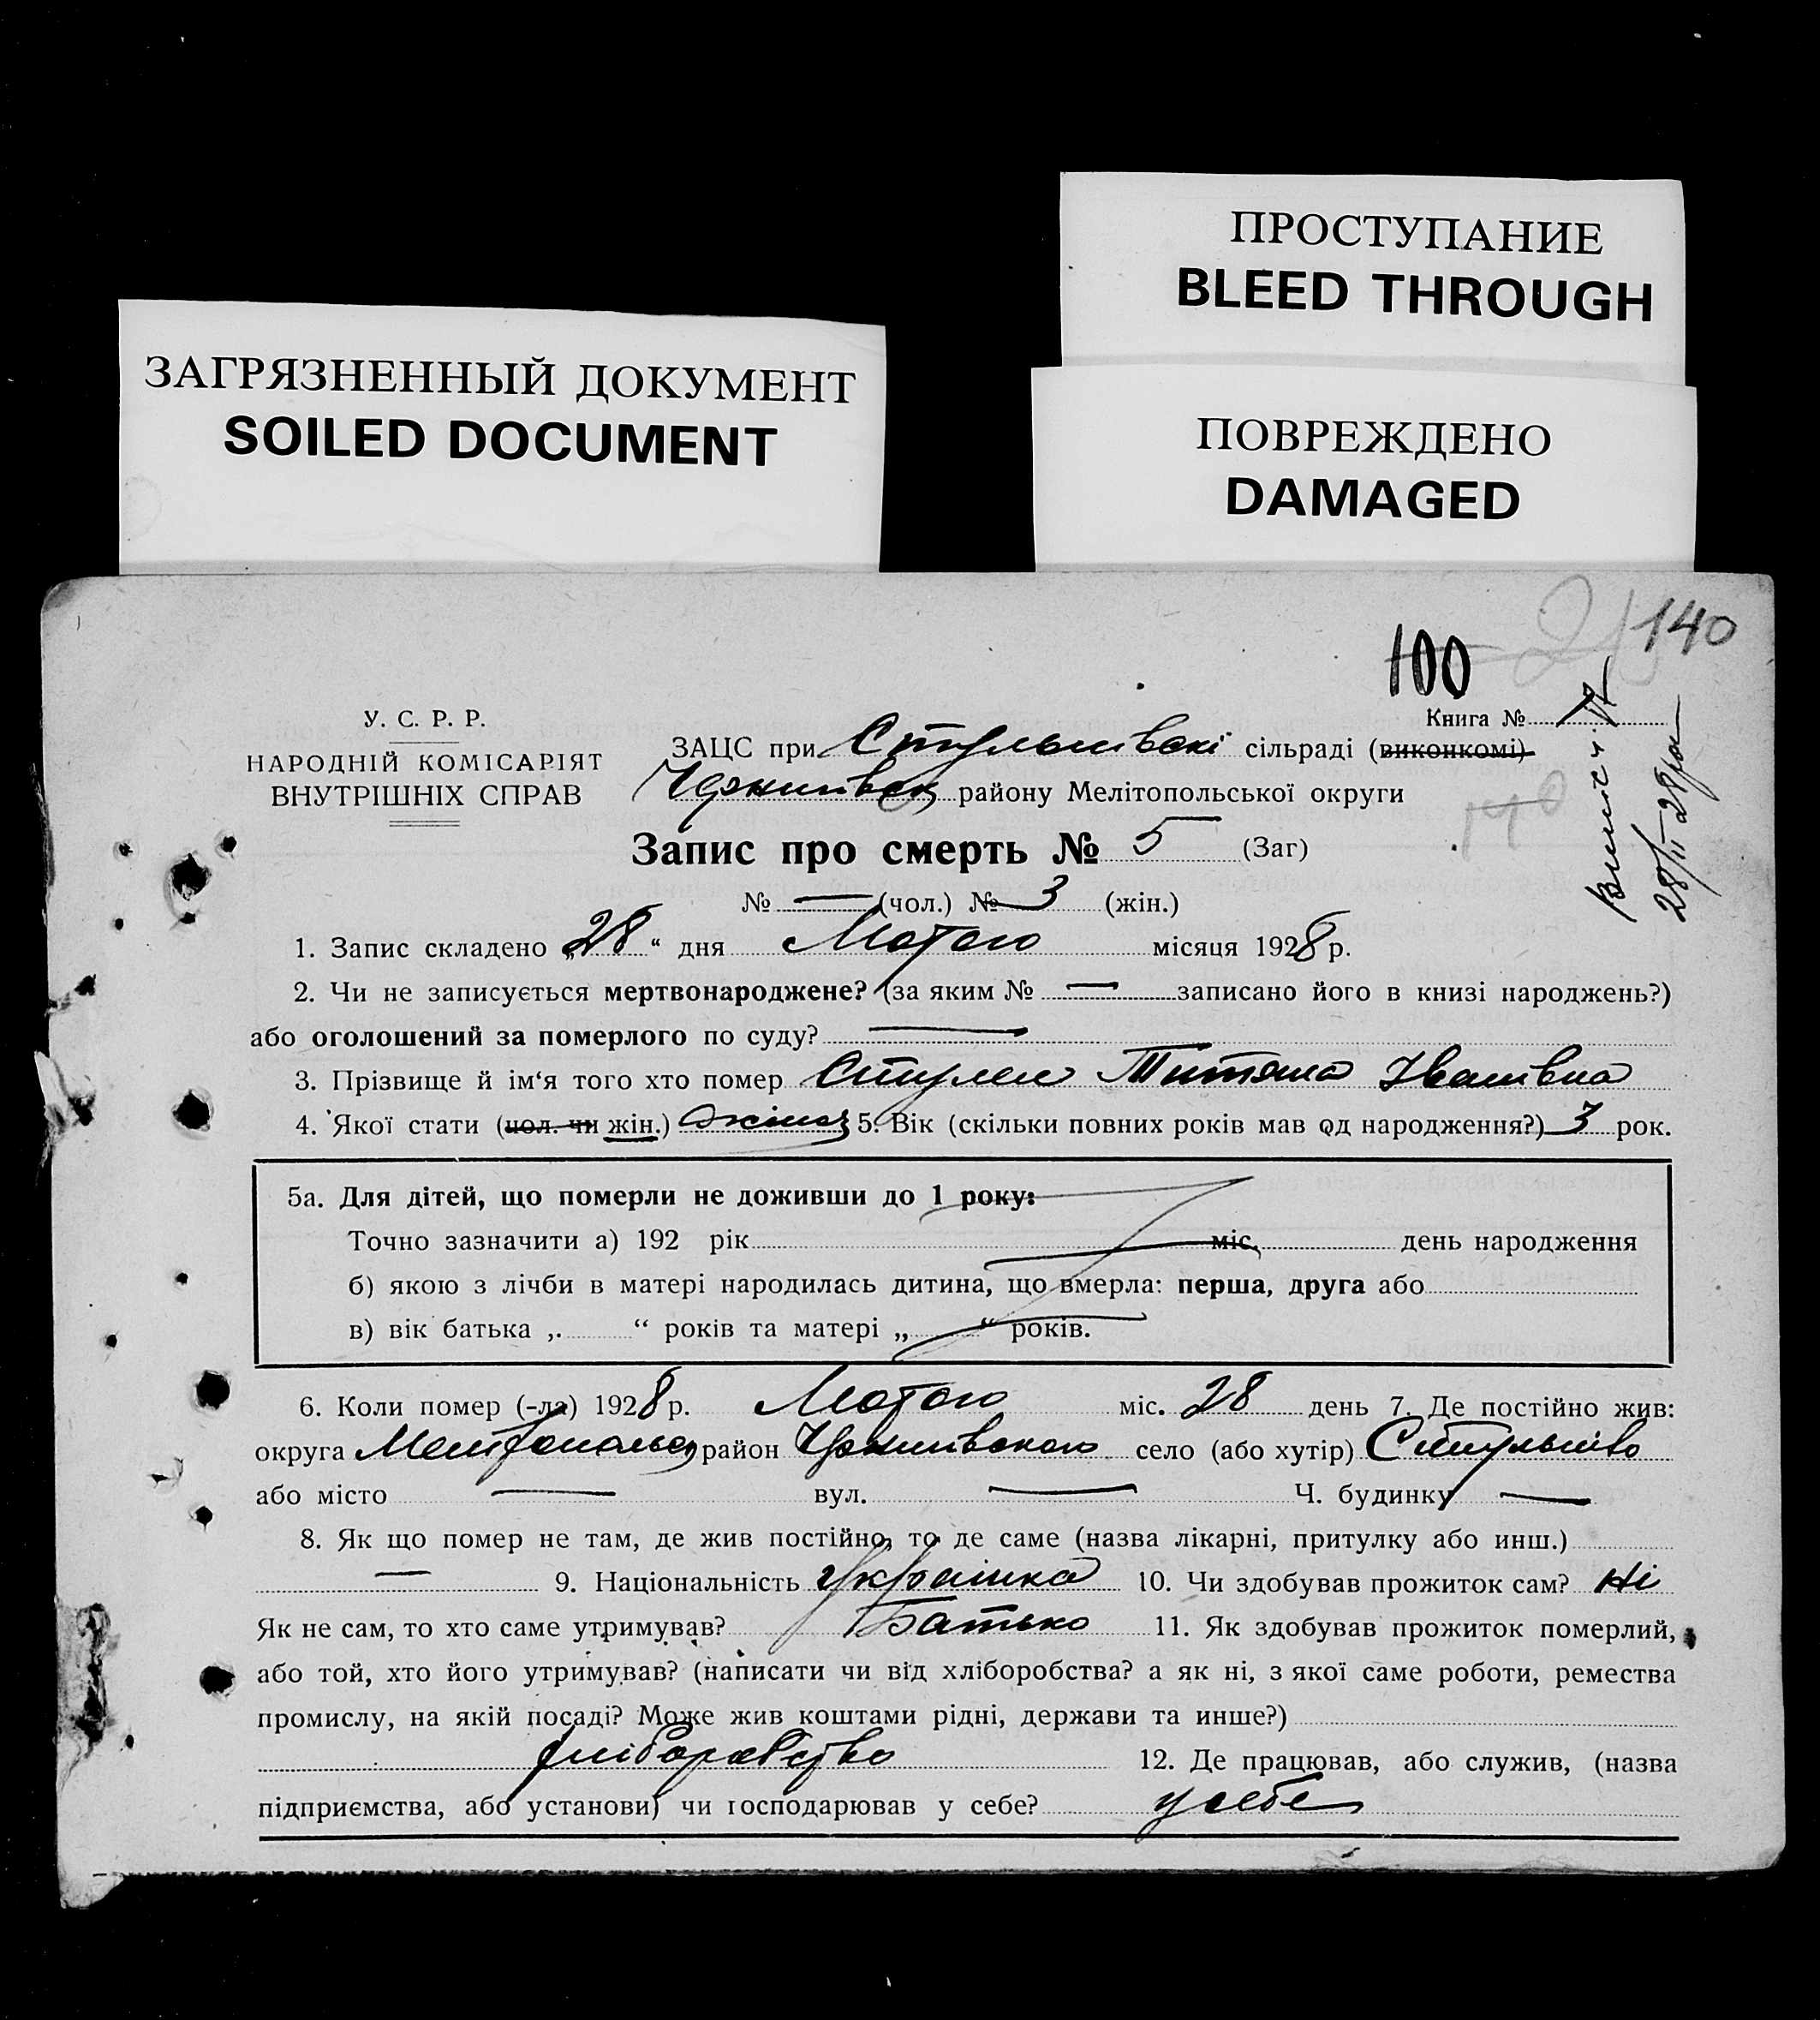 ПРОСТУПАНИЕ
BLEED THROUGH
ЗАГРЯЗНЕННЫЙ ДОКУМЕНТ
SOILED DOCUMENT
ПОВРЕЖДЕНО
DAMAGED
140
100
У. С. Р. Р.
НАРОДНІЙ КОМІСАРІЯТ
ВНУТРІШНІХ СПРАВ
Книга №
ЗАЦС при Стульнівскі сільраді (виконкомі)
Чернигівськ району Мелітопольської округи
28/II 28
Запис про смерть № 5 (Заг)
№ — (чол.) № 3 (жін.)
1. Запис складено „28“ дня Лютого місяця 1928 р.
2. Чи не записується мертвонароджене? (за яким № — записано його в книзі народжень?)
або оголошений за померлого по суду? —
3. Прізвище й ім‘я того хто помер Титяна Іванівна
4. Якої стати (чол. чи жін.) 5. Вік (скільки повних років мав од народження?) 3 рок.
5а. Для дітей, що померли не доживши до 1 року:
Точно зазначити а) 192 рік міс. день народження
б) якою з лічби в матері народилась дитина, що вмерла: перша, друга або
в) вік батька „ “ років та матері „ “ років.
6. Коли помер (-ла) 1928 р. Лютого міс. 28 день 7. Де постійно жив:
округа Мелітопольск район Чернигівского село (або хутір) Стульніво
або місто — вул. — Ч. будинку —
8. Як що помер не там, де жив постійно, то де саме (назва лікарні, притулку або инш.)
— 9. Національність Українка 10. Чи здобував прожиток сам? Ні
Як не сам, то хто саме утримував? Батько 11. Як здобував прожиток померлий,
або той, хто його утримував? (написати чи від хліборобства? а як ні, з якої саме роботи, ремества
промислу, на якій посаді? Може жив коштами рідні, держави та инше?)
хліборобство 12. Де працював, або служив, (назва
підприємства, або установи) чи господарював у себе? у себе